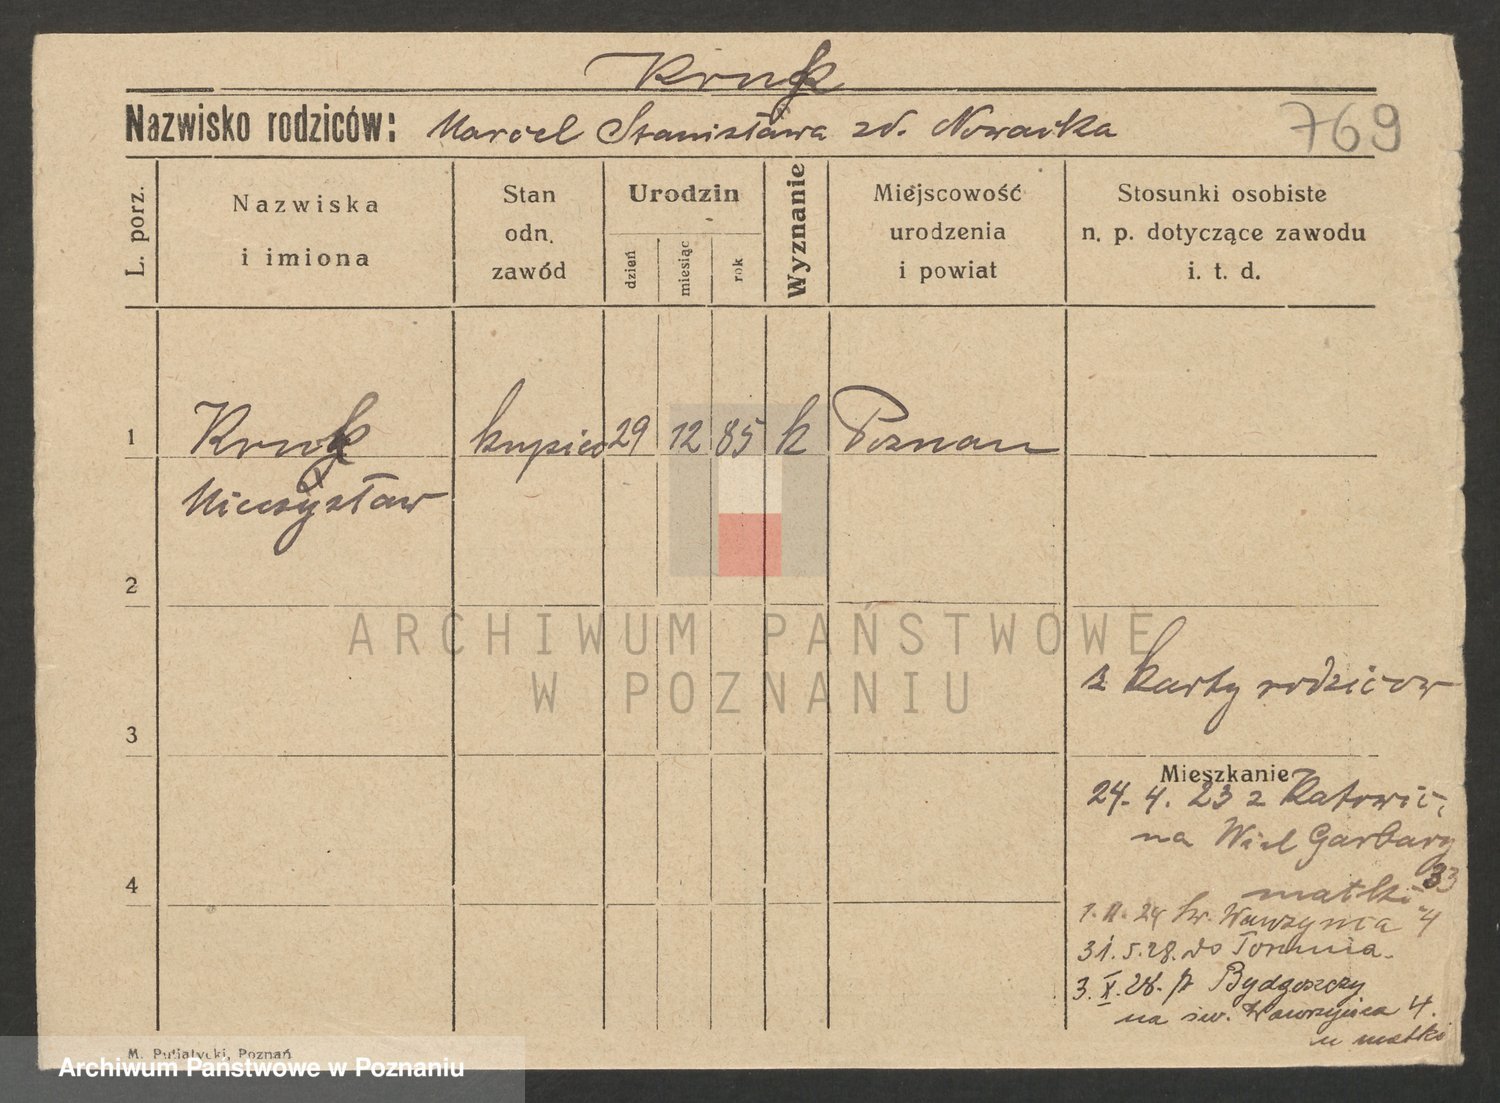 Kruk
Nazwisko rodziców: Marcel Stanisława zd. Nowacka
769
L. porz.
Nazwiska
i imiona
Stan
odn.
zawód
Urodzin
dzień
miesiąc
rok
Wyznanie
Miejscowość
urodzenia
i powiat
Stosunki osobiste
n. p. dotyczące zawodu
i. t. d.
1 Kruk kupiec 29 12 85 k Poznan
Mieczysław
2
ARCHIWUM PAŃSTWOWE
W POZNANIU
z karty rodzicow
3
Mieszkanie
24. 4. 23 z Katowic
na Wiel Garbary
33
4
matki
1. II. 24 św. Wawrzynca 4
31. 5. 28. do Torunia.
3. X. 28. z Bydgoszczy
na św. Wawrzyńca 4.
u matki
M. Putiatycki, Poznań
Archiwum Państwowe w Poznaniu